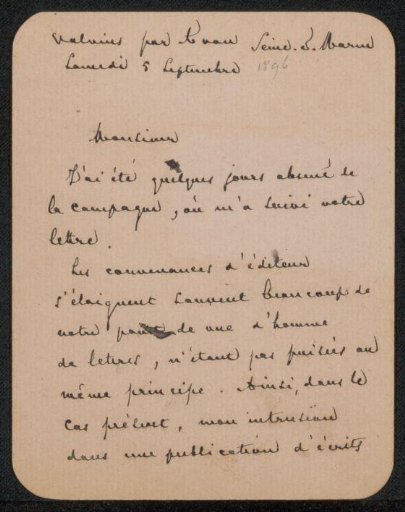 Valvins par Avon Seine-&-Marne
Samedi 5 Septembre 1896
Monsieur
J'ai été quelques jours absent de
la campagne, où m'a suivi votre
lettre.
Les convenances d'éditeur
s'éloignent souvent beaucoup de
notre point de vue d'homme
de lettres, n'étant pas puisées au
même principe. Ainsi, dans le
cas présent, mon intrusion
dans une publication d'écrits